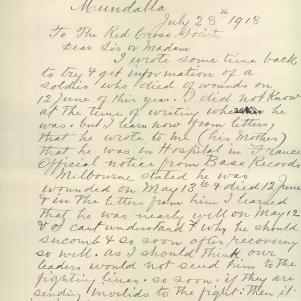 Mundalla
July 28th 1918
To The Red Cross Society,
Dear Sir or Madam
I wrote some time back
to try & get information of a
soldier who died of wounds on
12 June of this year. I did not know
at the time of writing where he
was. but I learn now from letters,
that he wrote to me (his Mother)
that he was in Hospital in France
Official notice from Base Records
Melbourne stated he was
wounded on May 13th & died 12 June
& in the letters from him I learned
that he was nearly well on May 12
& I cant understand why he should
sucomb & so soon after recovering
so well. as I should think our
leaders would not send him to the
fighting lines. so soon. if they are
sending Invilids to the fight: Then it